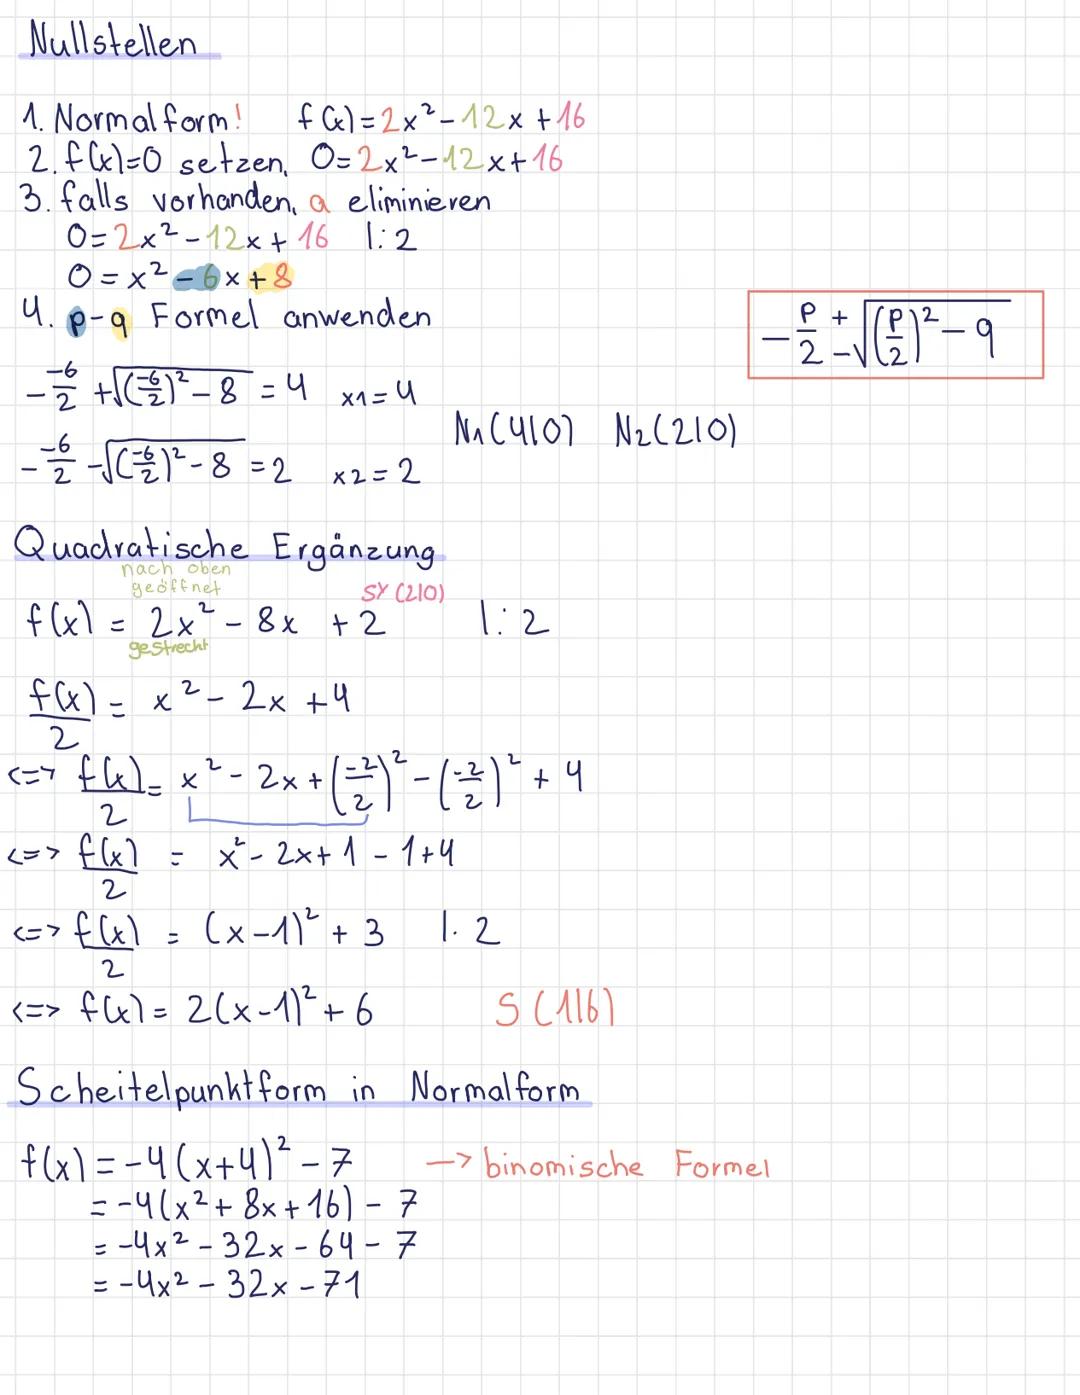 Nullstellen
1. Normalform! f(x)=2x²-12x+16
2. f(x)=0 setzen, 0=2x²-12x+16
3. falls vorhanden, a eliminieren
0=2x²-12x+16 |:2
0=x²-6x+8
4. p-q Formel anwenden
-p/2 ± √((p/2)²-q)
-(-6/2) + √((-6/2)²-8) = 4 x1=4
N1(4|0) N2(2|0)
-(-6/2) - √((-6/2)²-8) = 2 x2=2
Quadratische Ergänzung
nach oben
geöffnet
SY(2|0)
f(x) = 2x² - 8x + 2 |:2
gestreckt
f(x)/2 = x² - 2x + 4
<=> f(x)/2 = x² - 2x + (-2/2)² - (-2/2)² + 4
<=> f(x)/2 = x² - 2x + 1 - 1 + 4
<=> f(x)/2 = (x-1)² + 3 |· 2
<=> f(x) = 2(x-1)² + 6 S(1|6)
Scheitelpunktform in Normalform
f(x) = -4(x+4)² - 7 -> binomische Formel
= -4(x² + 8x + 16) - 7
= -4x² - 32x - 64 - 7
= -4x² - 32x - 71